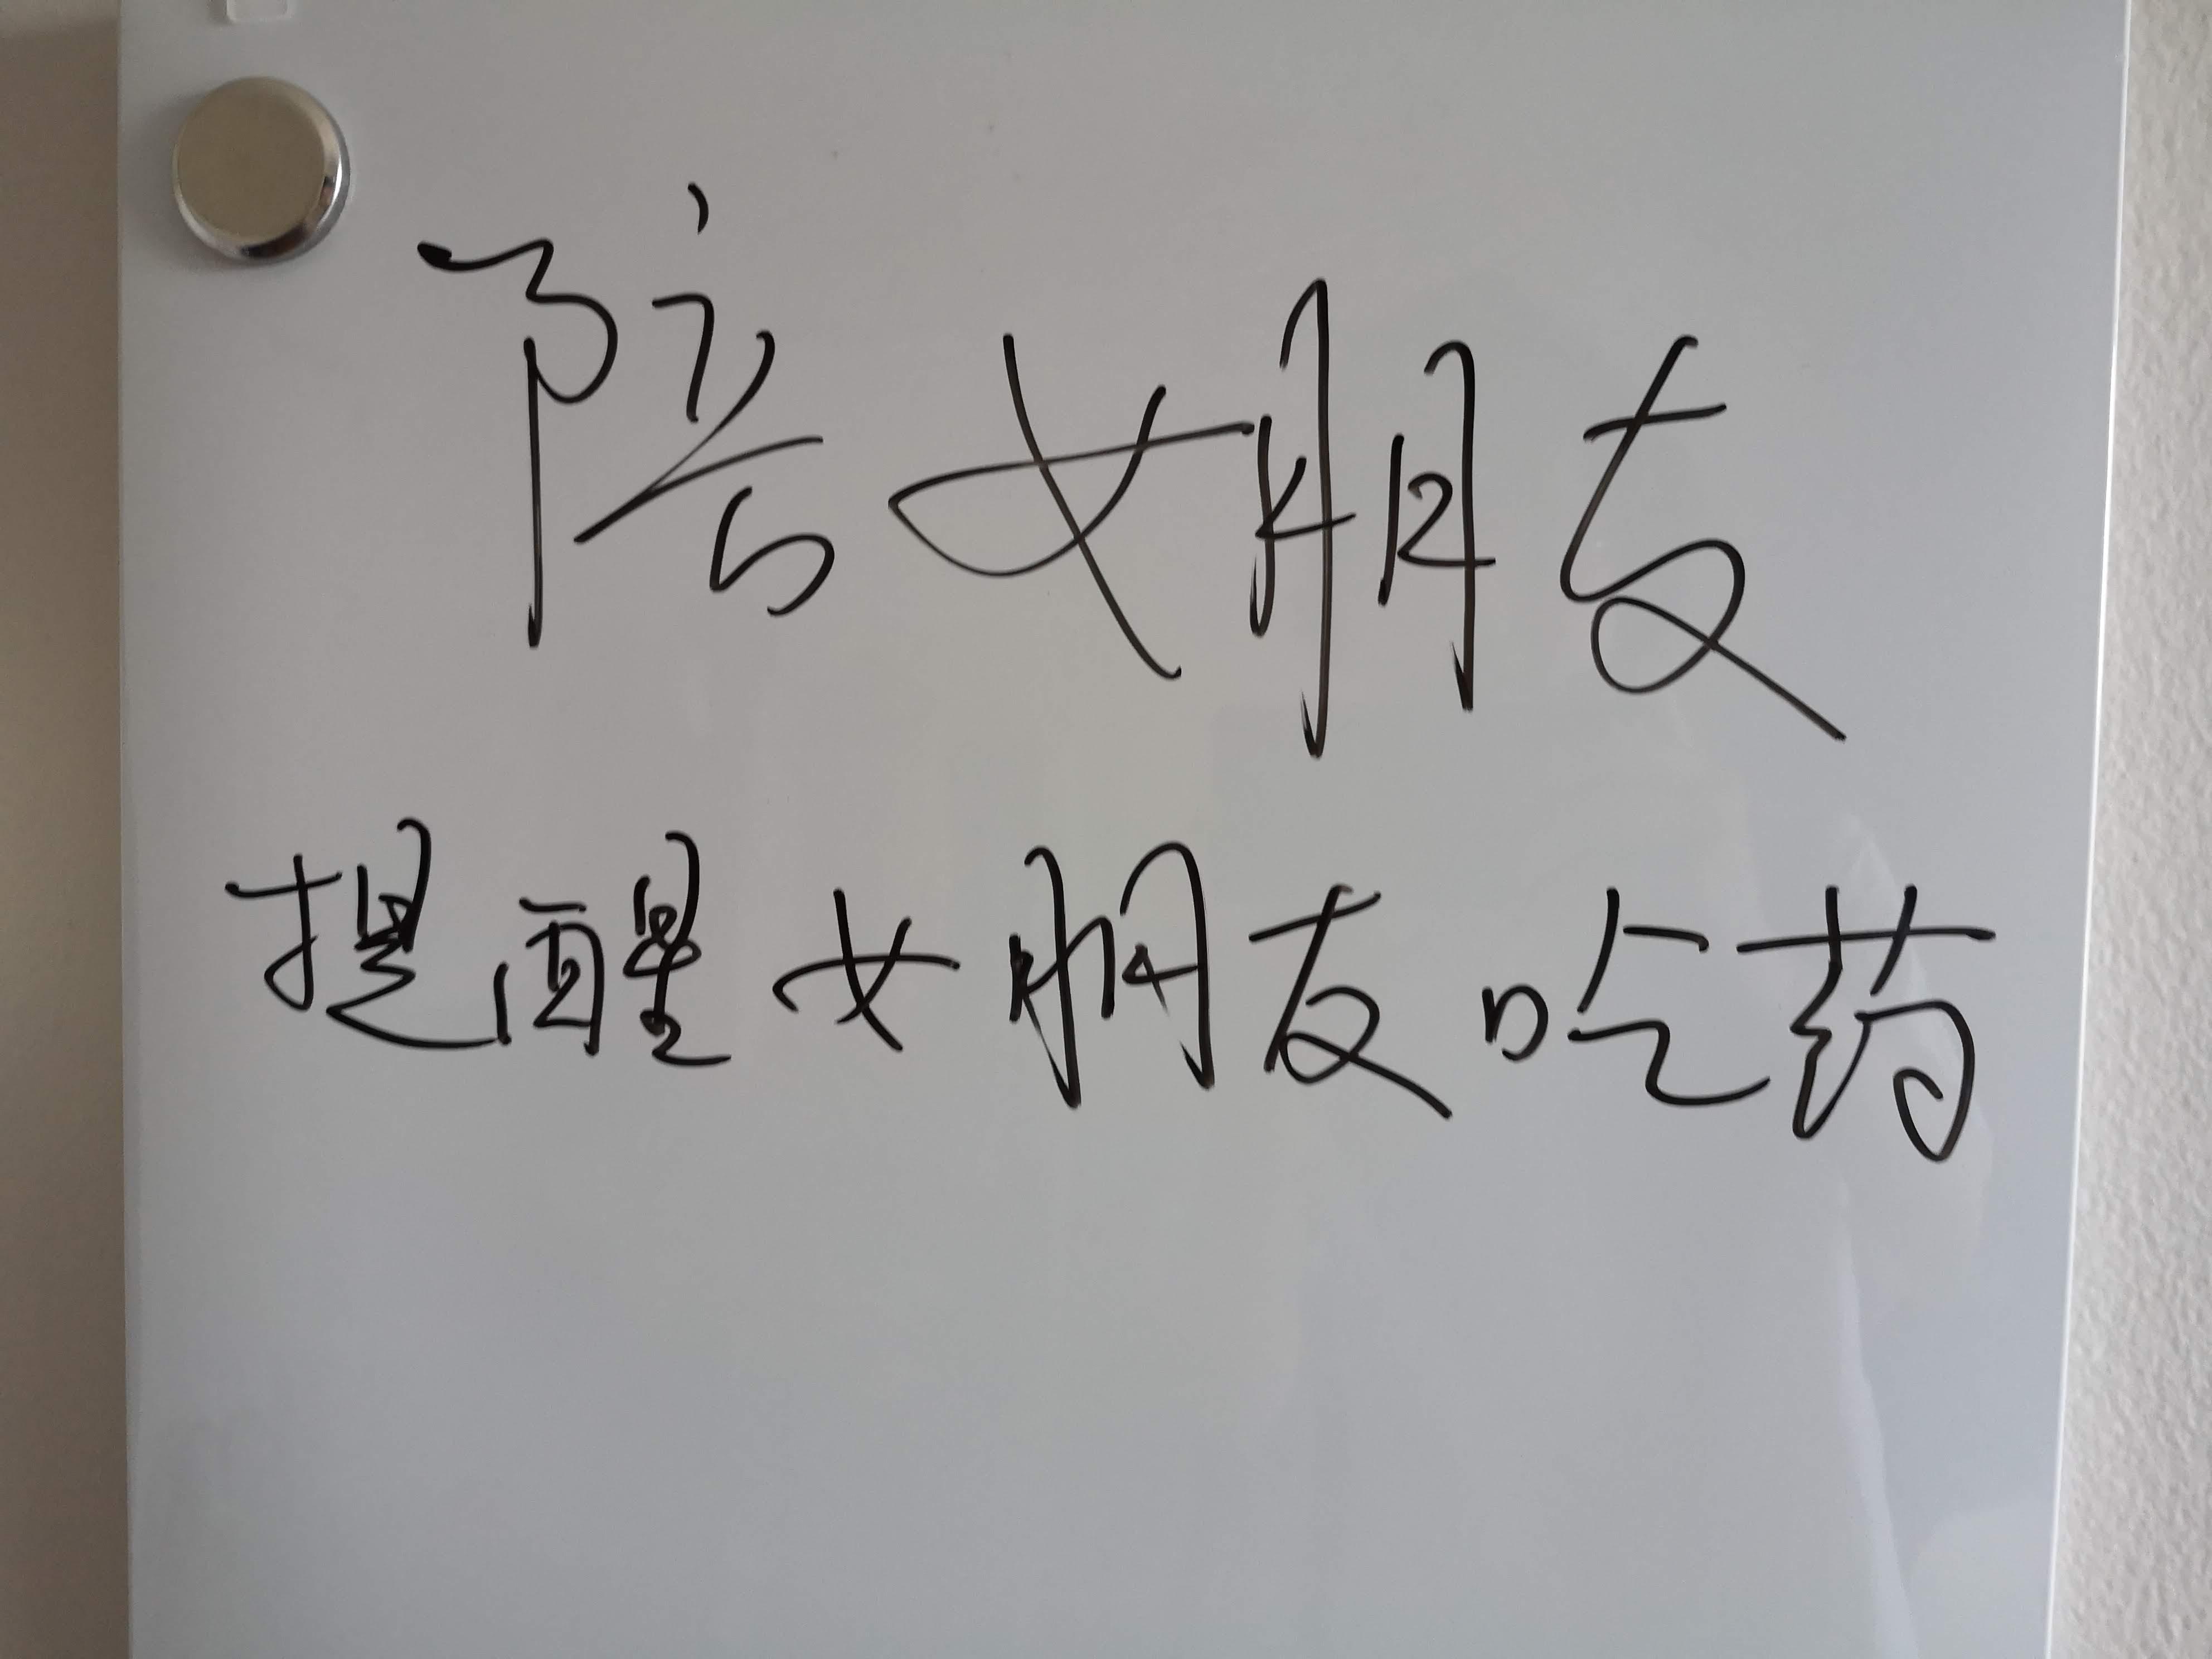 陪女朋友
提醒女朋友吃药